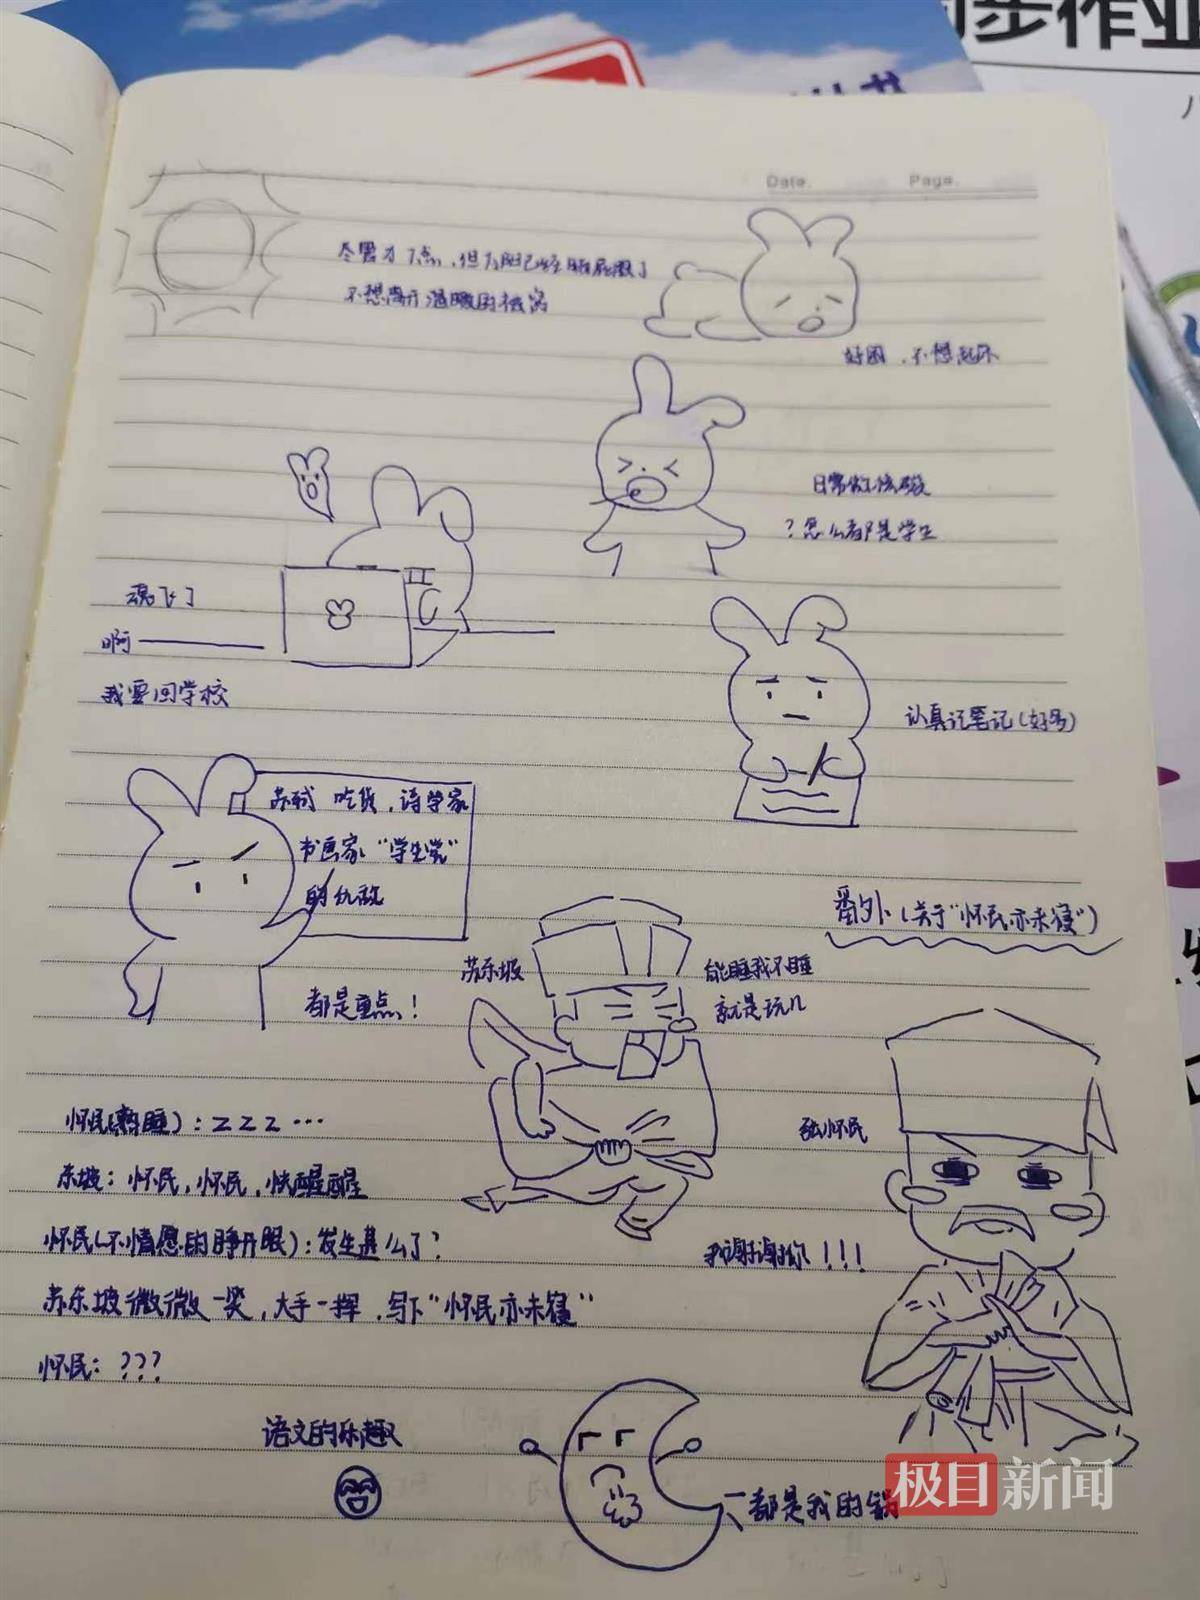 同步作业
Date.
Page.
尽管才7点,但太阳已经晒屁股了
不想离开温暖的被窝
好困,不想起床
日常做核酸
?怎么都是学生
魂飞了
啊———
我要回学校
认真记笔记(好多)
苏轼 吃货,诗学家
书画家"学生党"
的仇敌
都是重点!
番外(关于"怀民亦未寝")
苏东坡
能睡我不睡
就是玩儿
怀民(熟睡):ZZZ…
张怀民
东坡:怀民,怀民,快醒醒
怀民(不情愿的睁开眼):发生甚么了?
我谢谢你!!!
苏东坡微微一笑,大手一挥,写下"怀民亦未寝"
怀民:???
语文的乐趣
都是我的锅
极目新闻